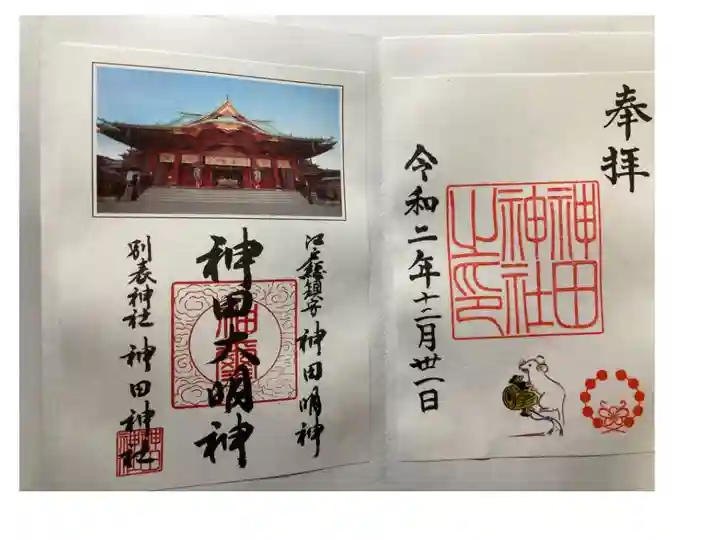 奉拝
神田
神社
之印
令和二年十二月卅一日
江戸総鎮守 神田明神
神田大明神
別表神社 神田神社